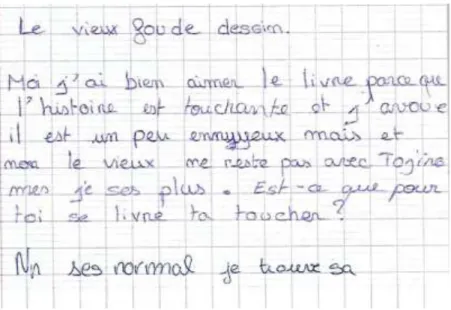 Le vieux fou de dessim.
Moi j'ai bien aimer le livre parce que
l'histoire est touchante et j'avoue
il est un peu ennuyeux mais et
non le vieux ne reste pas avec Tojiro
mes je ses plus. Est-ce que pour
toi se livre ta toucher?
Nn ses normal je trouve sa